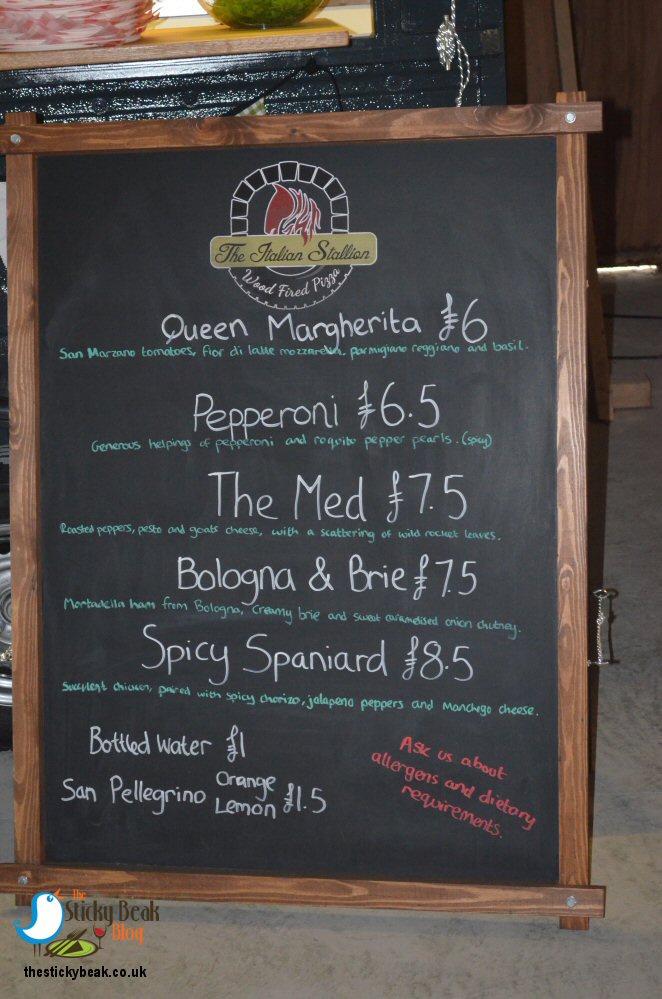 The Italian Stallion
Wood Fired Pizza
Queen Margherita £6
San Marzano tomatoes, fior di latte mozzarella, parmigiano reggiano and basil.
Pepperoni £6.5
Generous helpings of pepperoni and roquito pepper pearls. (spicy)
The Med £7.5
Roasted peppers, pesto and goats cheese, with a scattering of wild rocket leaves.
Bologna & Brie £7.5
Mortadella ham from Bologna, creamy brie and sweet caramelised onion chutney.
Spicy Spaniard £8.5
Succulent chicken, paired with spicy chorizo, jalapeno peppers and Manchego cheese.
Bottled Water £1
San Pellegrino Orange
Lemon £1.5
Ask us about
allergens and dietary
requirements.
The
Sticky Beak
Blog
thestickybeak.co.uk